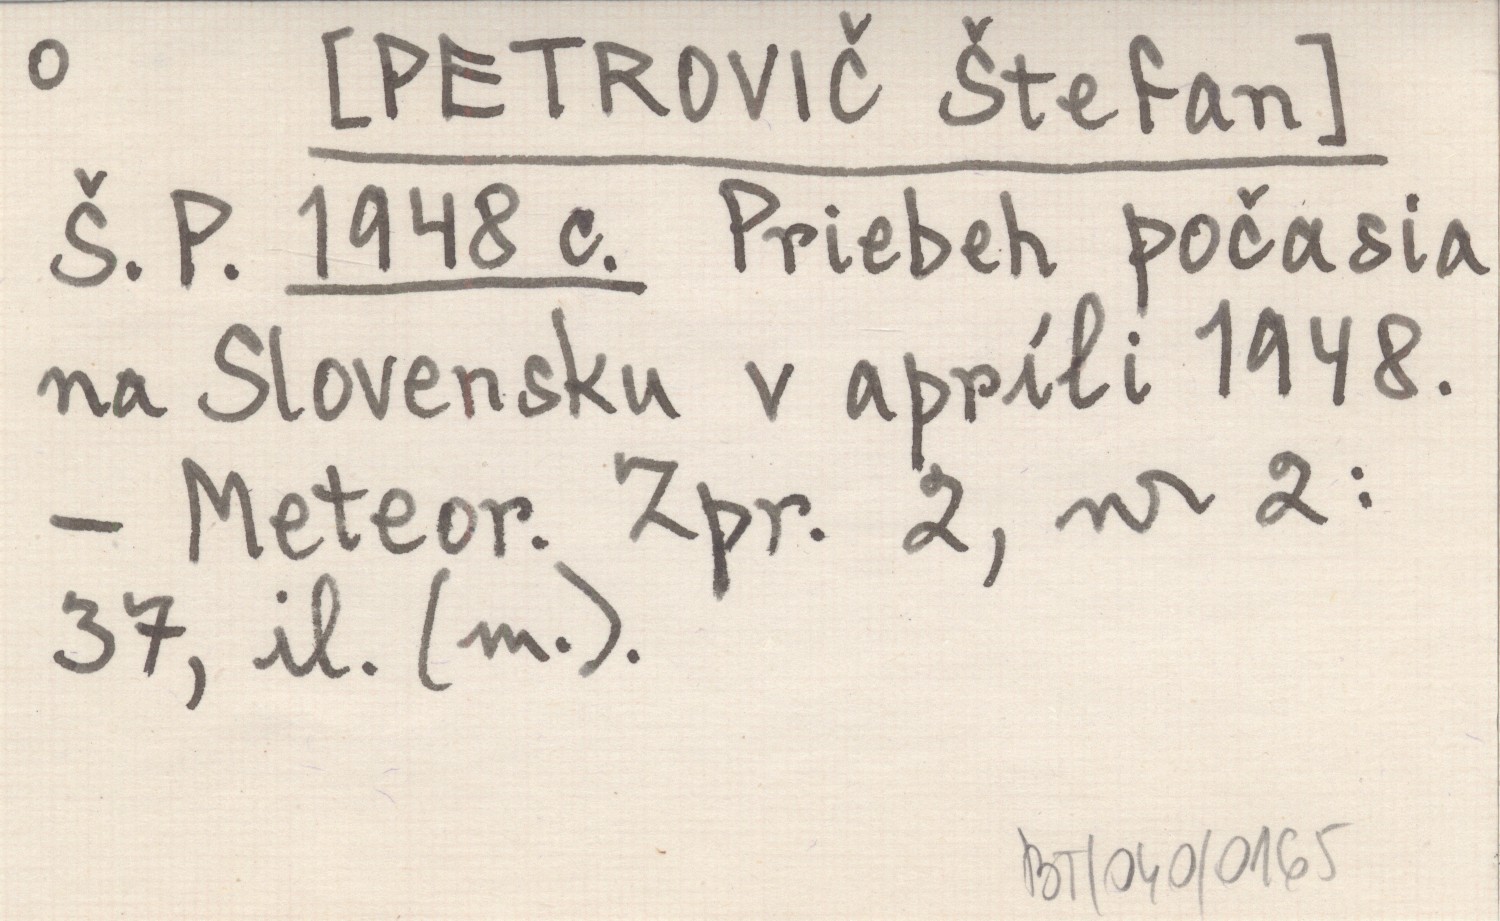 o [PETROVIČ Štefan]
Š. P. 1948 c. Priebeh počasia
na Slovensku v apríli 1948.
– Meteor. Zpr. 2, nr 2:
37, il. (m.).
BT/040/0165